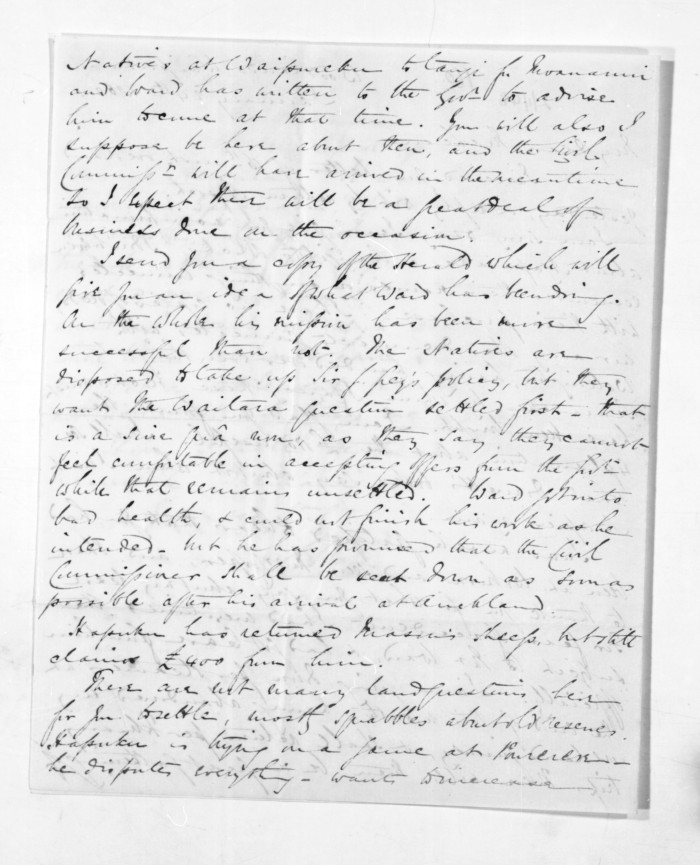 Natives at Waipureku to tangi for Moananui
and Ward has written to the Govr to advise
him to come at that time. You will also I
suppose be here about then, and the Civil
Commissr will have arrived in the meantime
so I expect there will be a great deal of
business done on the occasion.
I send you a copy of the Herald which will
give you an idea of what Ward has been doing.
On the whole his mission has been more
successful than not. The Natives are
disposed to take up Sir G. Grey's policy, but they
want the Waitara question settled first - that
is a sine quâ non, as they say they cannot
feel comfortable in accepting offers from the Govt
while that remains unsettled. Ward got into
bad health, & could not finish his work as he
intended - but he has promised that the Civil
Commissioner shall be sent down as soon as
possible after his arrival at Auckland.
Hapuku has returned Mason's sheep, but still
claims £400 from him.
There are not many land questions here
for you to settle, mostly squabbles about old reserves.
Hapuku is trying on a game at -
he disputes everything - wants to increase